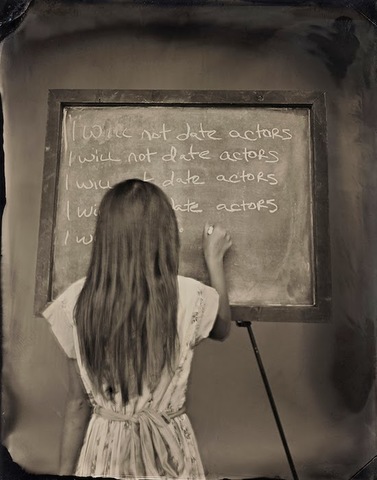 I will not date actors
I will not date actors
I will date actors
I wi date actors
I w